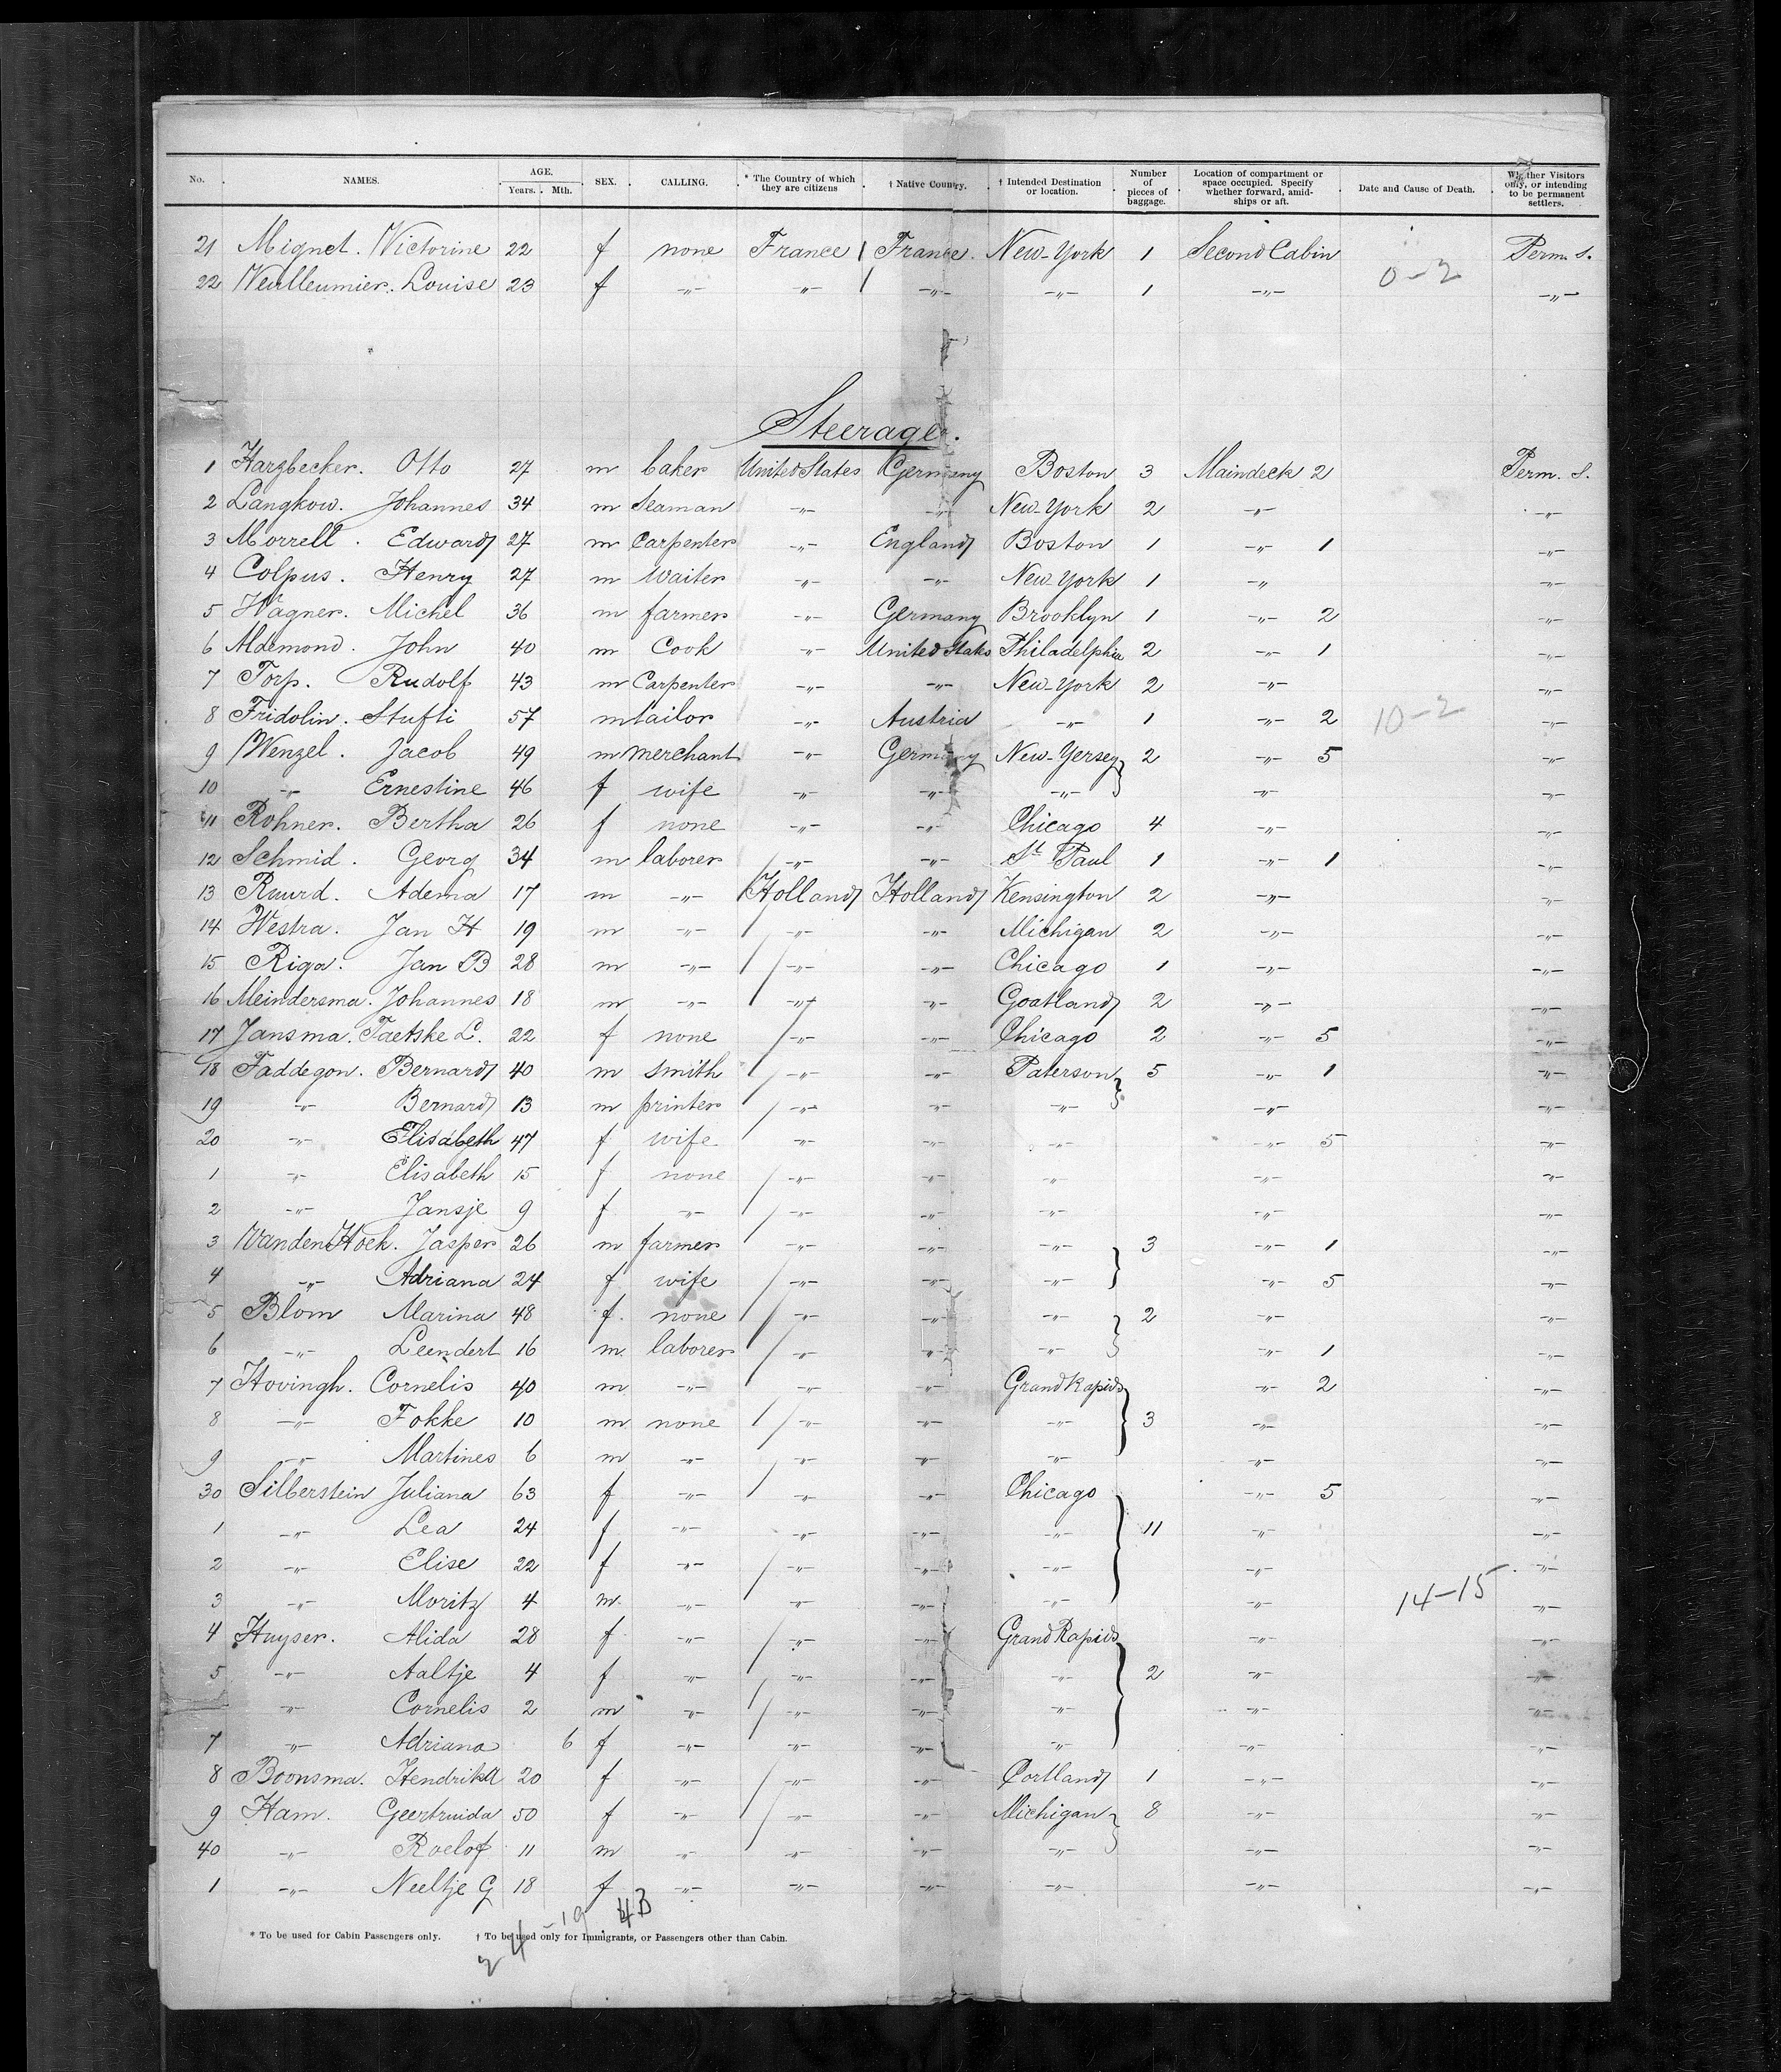 No. NAMES. AGE. Years. Mth. SEX. CALLING. * The Country of which they are citizens † Native Country. † Intended Destination or location. Number of pieces of baggage. Location of compartment or space occupied. Specify whether forward, amidships or aft. Date and Cause of Death. Whether Visitors only, or intending to be permanent settlers.
21 Mignet. Victorine 22 f none France France. New-York 1 Second Cabin Perm. S.
22 Veulleumier. Louise 23 f -"- -"- -"- -"- 1 -"- -"-
0-2
Steerage.
1 Harzbecker. Otto 27 m baker United States Germany Boston 3 Maindeck 2 Perm. S.
2 Langkow. Johannes 34 m Seaman -"- -"- New-York 2 -"- -"-
3 Morrell. Edward 27 m Carpenter -"- England Boston 1 -"- 1 -"-
4 Colpus. Henry 27 m Waiter -"- -"- New-York 1 -"- -"-
5 Wagner. Michel 36 m farmer -"- Germany Brooklyn 1 -"- 2 -"-
6 John 40 m Cook -"- United States Philadelphia 2 -"- 1 -"-
7 Torp. Rudolf 43 m Carpenter -"- -"- New-York 2 -"- -"-
8 Fridolin. Stufti 57 m tailor -"- Austria -"- 1 -"- 2 10-2 -"-
9 Wenzel. Jacob 49 m merchant -"- Germany New-Yersey 2 -"- 5 -"-
10 -"- Ernestine 46 f wife -"- -"- -"- -"- -"-
11 Rohner. Bertha 26 f none -"- -"- Chicago 4 -"- -"-
12 Schmid. Georg 34 m laborer -"- -"- St Paul 1 -"- 1 -"-
13 Ruurd. Adema 17 m -"- Holland Holland Kensington 2 -"- -"-
14 Westra. Jan H 19 m -"- -"- -"- Michigan 2 -"- -"-
15 Riga. Jan B 28 m -"- -"- -"- Chicago 1 -"- -"-
16 Meindersma. Johannes 18 m -"- -"- -"- Goatland 2 -"- -"-
17 Jansma. Taetske L. 22 f none -"- -"- Chicago 2 -"- 5 -"-
18 Faddegon. Bernard 40 m smith -"- -"- Paterson 5 -"- 1 -"-
19 -"- Bernard 13 m printer -"- -"- -"- -"- -"-
20 -"- Elisabeth 47 f wife -"- -"- -"- -"- 5 -"-
1 -"- Elisabeth 15 f none -"- -"- -"- -"- -"-
2 -"- Jansje 9 f -"- -"- -"- -"- -"- -"-
3 Vanden Hoek. Jasper 26 m farmer -"- -"- -"- 3 -"- 1 -"-
4 -"- Adriana 24 f wife -"- -"- -"- -"- 5 -"-
5 Blom Marina 48 f. none -"- -"- -"- 2 -"- -"-
6 -"- Leendert 16 m. laborer -"- -"- -"- -"- 1 -"-
7 Hovingh. Cornelis 40 m -"- -"- -"- Grand Rapids -"- 2 -"-
8 -"- Fokke 10 m none -"- -"- -"- 3 -"- -"-
9 -"- Martines 6 m -"- -"- -"- -"- -"- -"-
30 Silberstein Juliana 63 f -"- -"- -"- Chicago -"- 5 -"-
1 -"- Lea 24 f -"- -"- -"- -"- 11 -"- -"-
2 -"- Elise 22 f -"- -"- -"- -"- -"- -"-
3 -"- Moritz 4 m. -"- -"- -"- -"- -"- 14-15 -"-
4 Huyser. Alida 28 f -"- -"- -"- Grand Rapids -"- -"-
5 -"- Aaltje 4 f -"- -"- -"- -"- 2 -"- -"-
-"- Cornelis 2 m -"- -"- -"- -"- -"- -"-
7 -"- Adriana 6 f -"- -"- -"- -"- -"- -"-
8 Boonsma. Hendrika 20 f -"- -"- -"- Cortland 1 -"- -"-
9 Ham. Geertruida 50 f -"- -"- -"- Michigan 8 -"- -"-
40 -"- Roelof 11 m -"- -"- -"- -"- -"- -"-
1 -"- Neeltje G 18 f -"- -"- -"- -"- -"- -"-
* To be used for Cabin Passengers only. † To be used only for Immigrants, or Passengers other than Cabin.